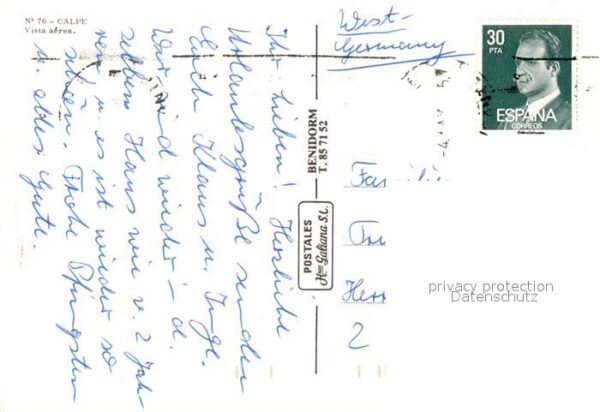 Nº 76 - CALPE
Vista aérea.
Ihr Lieben! Herzliche
Urlaubsgrüße senden
Euch Klaus u. Inge.
Wir sind wieder i. d.
selben Haus wie v. 2 Jah-
ren u. es ist wieder so
schön. Frohe Pfingsten
u. alles Gute.
BENIDORM
T. 85 71 52
POSTALES
Hnos Galiana S.L.
West-
Germany
30
PTA
ESPAÑA
CORREOS
Fam
Herr
2
privacy protection
Datenschutz